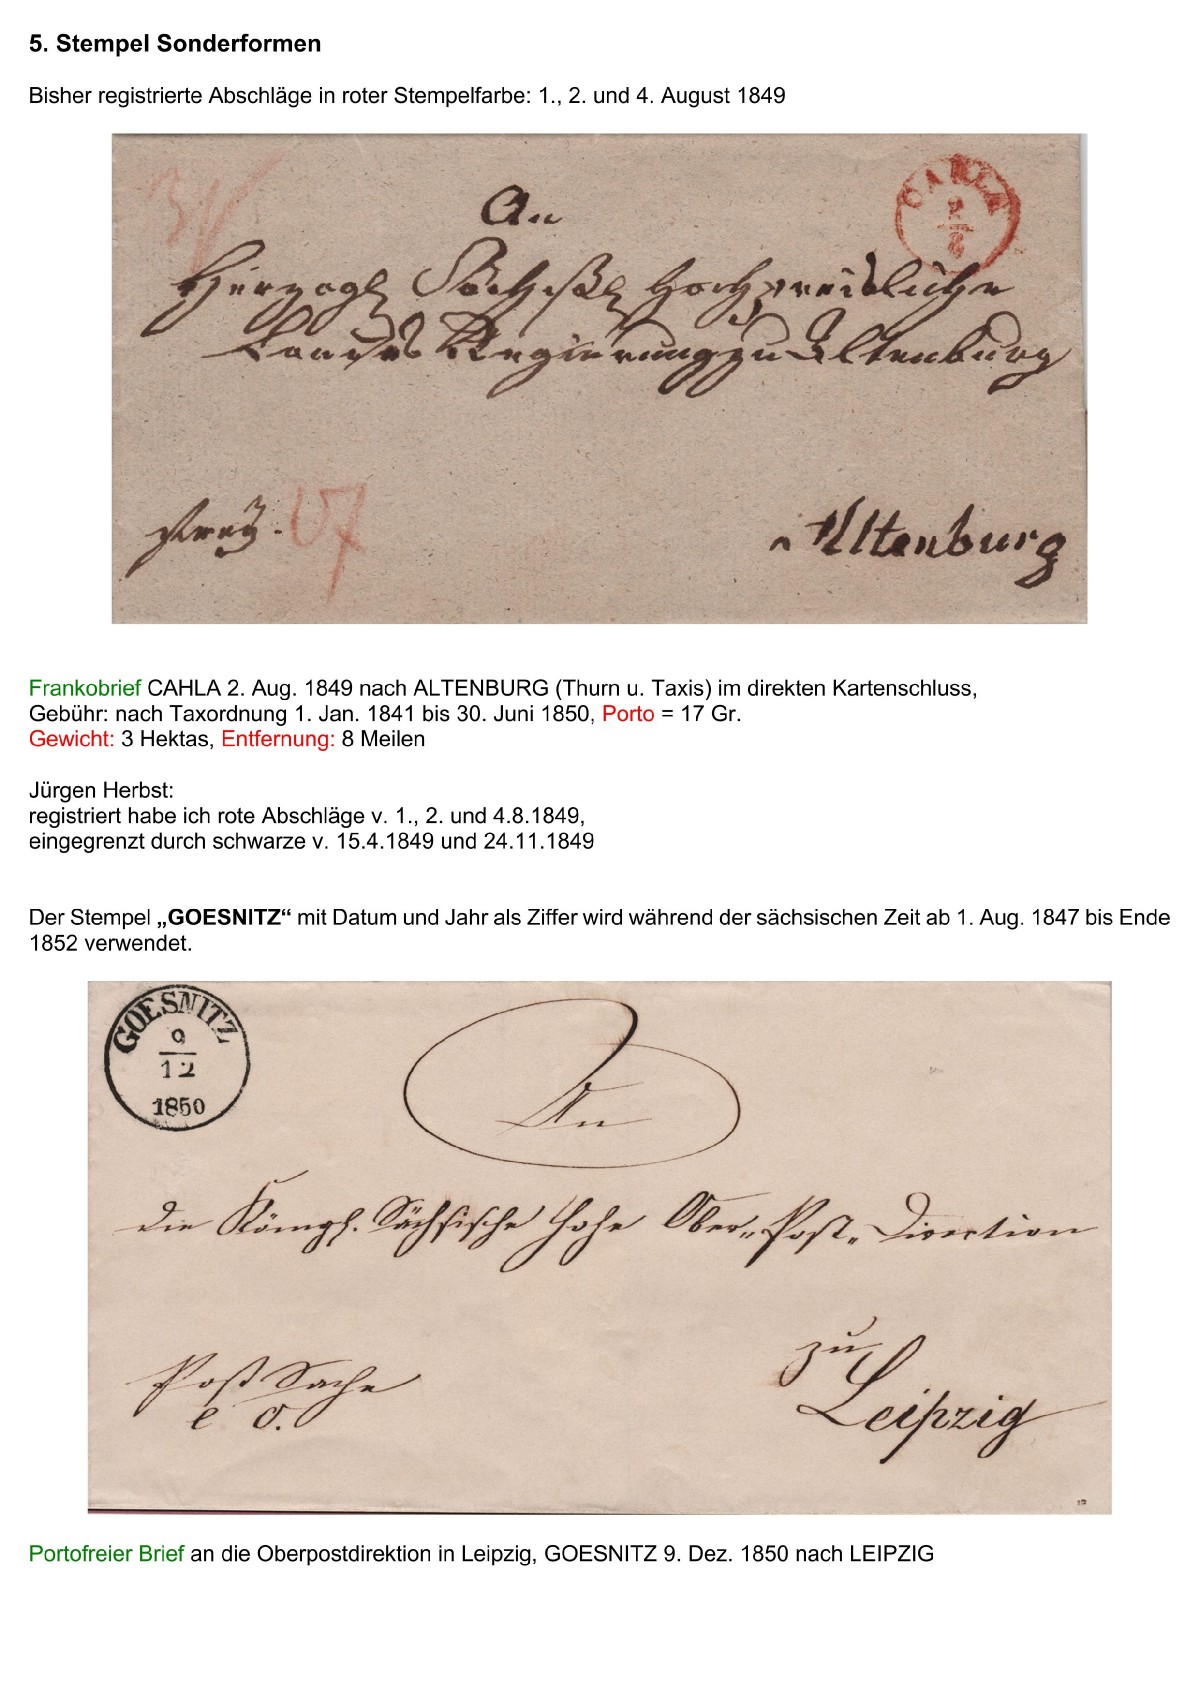 5. Stempel Sonderformen
Bisher registrierte Abschläge in roter Stempelfarbe: 1., 2. und 4. August 1849
CAHLA
2
8
An
Herzogl Sächßl Hochpreisliche
Landes Regierung zu Altenburg
frey.
Altenburg
Frankobrief CAHLA 2. Aug. 1849 nach ALTENBURG (Thurn u. Taxis) im direkten Kartenschluss,
Gebühr: nach Taxordnung 1. Jan. 1841 bis 30. Juni 1850, Porto = 17 Gr.
Gewicht: 3 Hektas, Entfernung: 8 Meilen
Jürgen Herbst:
registriert habe ich rote Abschläge v. 1., 2. und 4.8.1849,
eingegrenzt durch schwarze v. 15.4.1849 und 24.11.1849
Der Stempel „GOESNITZ“ mit Datum und Jahr als Ziffer wird während der sächsischen Zeit ab 1. Aug. 1847 bis Ende
1852 verwendet.
GOESNITZ
9
12
1850
An
die Königl. Sächsische hohe Ober-Post-Direction
zu
Post Sache
Leipzig
Portofreier Brief an die Oberpostdirektion in Leipzig, GOESNITZ 9. Dez. 1850 nach LEIPZIG